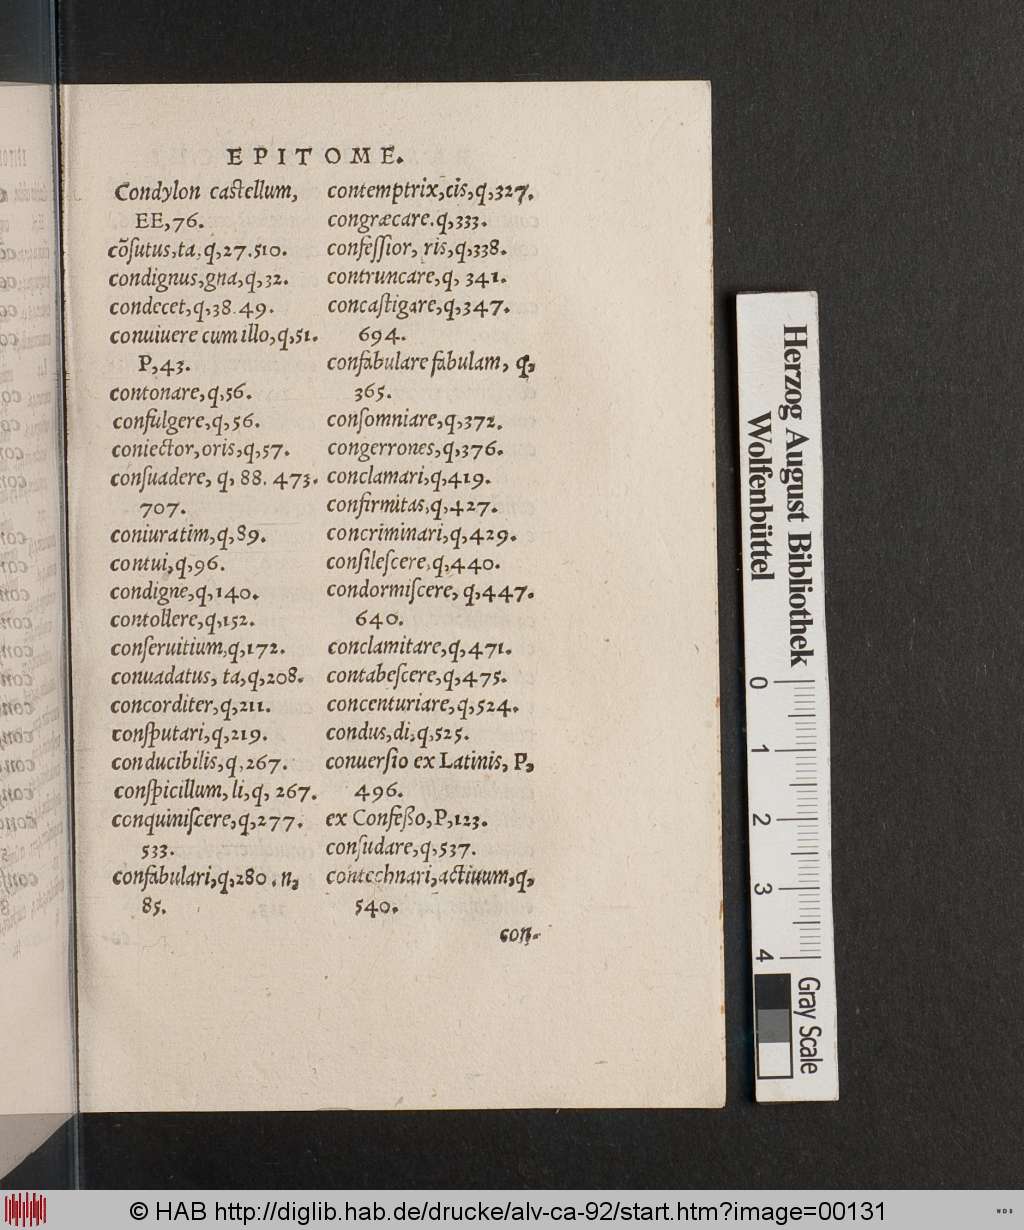 EPITOME.
Condylon castellum,
EE,76.
cõsutus,ta,q,27.510.
condignus,gna,q,32.
condecet,q,38.49.
conuiuere cum illo,q,51.
P,43.
contonare,q,56.
confulgere,q,56.
coniector,oris,q,57.
conſuadere, q, 88. 473.
707.
coniuratim,q,89.
contui,q,96.
condigne,q,140.
contollere,q,152.
conſeruitium,q,172.
conuadatus, ta,q,208.
concorditer,q,211.
conſputari,q,219.
conducibilis,q,267.
conſpicillum, li,q, 267.
conquiniſcere,q,277.
533.
confabulari,q,280. n,
85.
contemptrix,cis,q,327.
congræcare.q,333.
confeſſior, ris,q,338.
contruncare,q, 341.
concaſtigare,q,347.
694.
confabulare fabulam, q,
365.
conſomniare,q,372.
congerrones,q,376.
conclamari,q,419.
confirmitas,q,427.
concriminari,q,429.
conſileſcere,q,440.
condormiſcere, q,447.
640.
conclamitare,q,471.
contabeſcere,q,475.
concenturiare,q,524.
condus,di,q,525.
conuerſio ex Latinis, P,
496.
ex Confeßo,P,123.
conſudare,q,537.
contechnari,actiuum,q,
540.
con-
Herzog August Bibliothek
Wolfenbüttel
0 1 2 3 4
Gray Scale
© HAB http://diglib.hab.de/drucke/alv-ca-92/start.htm?image=00131